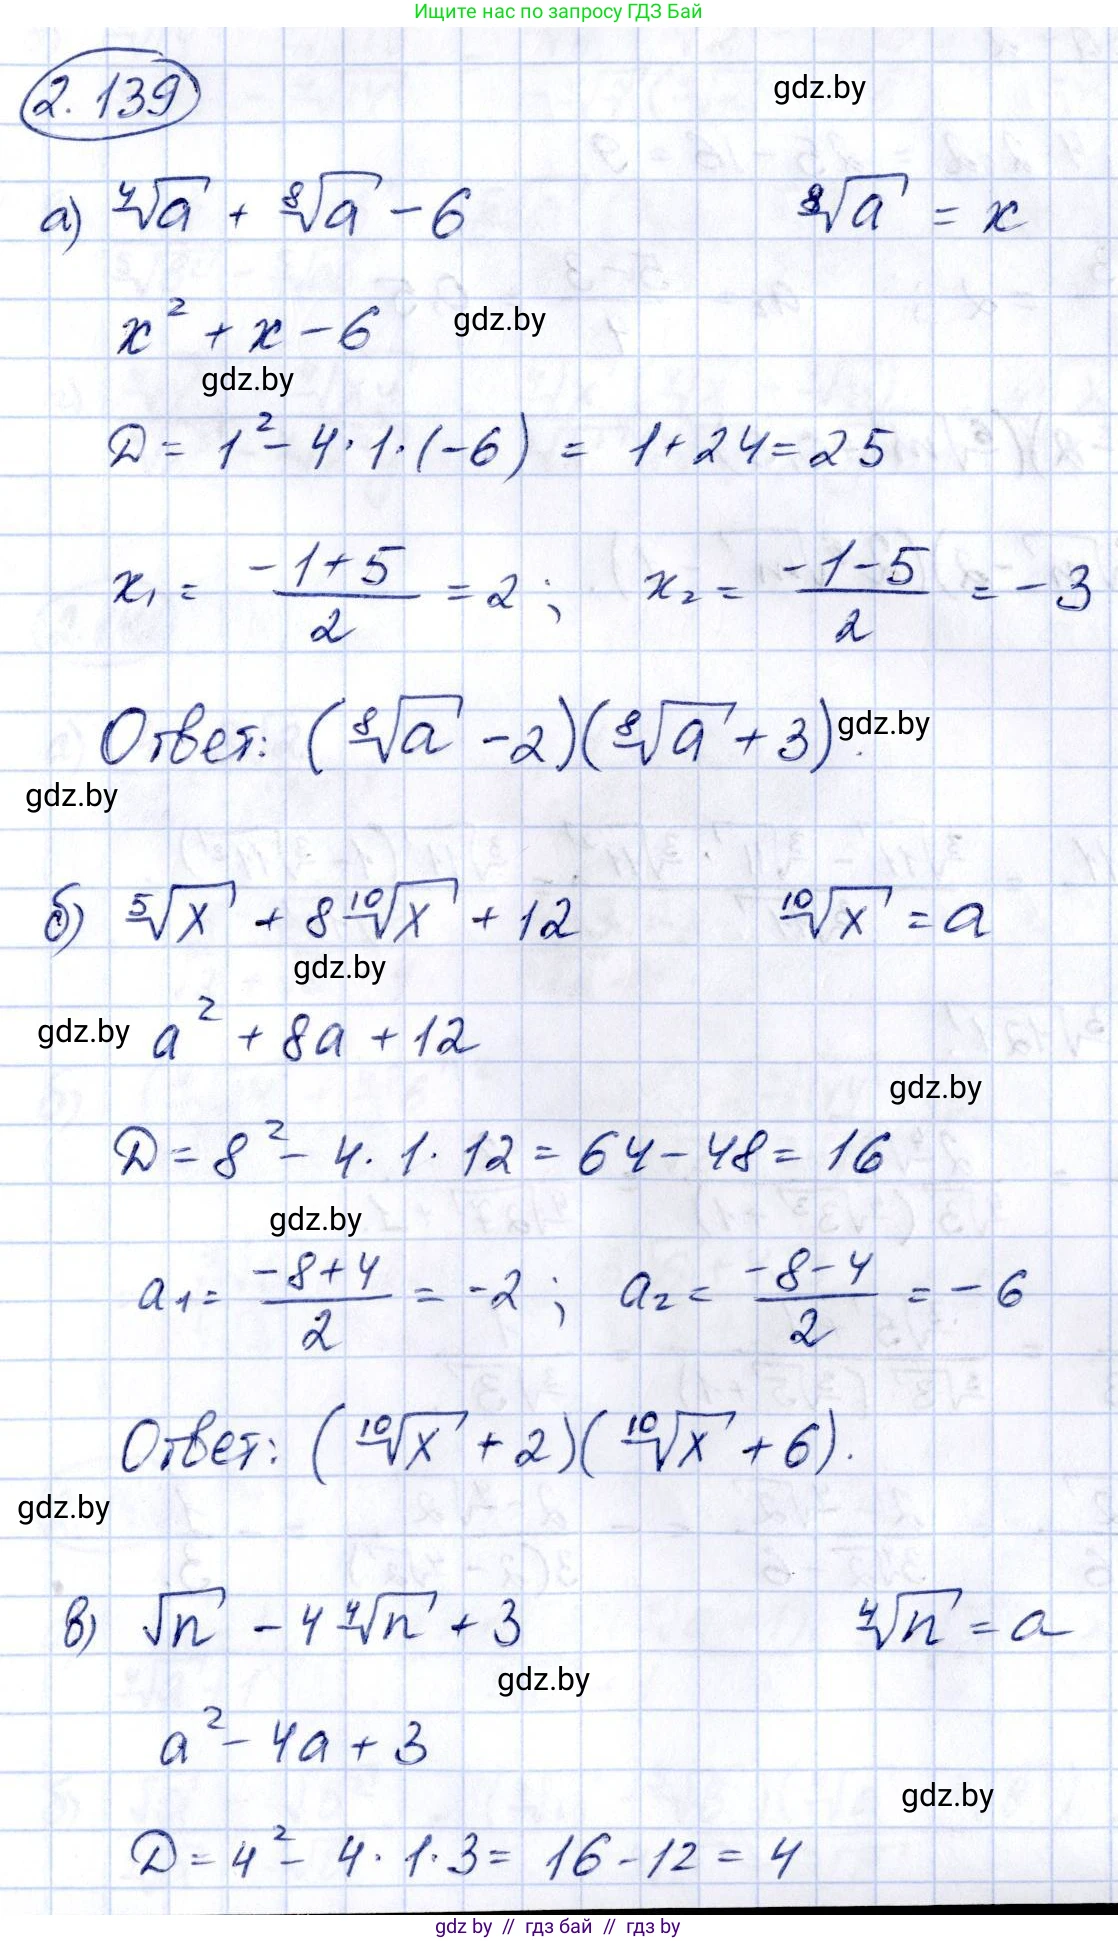 Ищите нас по запросу ГДЗ Бай
2.139
gdz.by
а) ⁴√a + ⁸√a - 6    ⁸√a = x
x² + x - 6
gdz.by
gdz.by
D = 1² - 4·1·(-6) = 1 + 24 = 25
x₁ = (-1+5)/2 = 2; x₂ = (-1-5)/2 = -3
Ответ: (⁸√a - 2)(⁸√a + 3).
gdz.by
gdz.by
б) ⁵√x + 8 ¹⁰√x + 12    ¹⁰√x = a
gdz.by
gdz.by
a² + 8a + 12
gdz.by
D = 8² - 4·1·12 = 64 - 48 = 16
gdz.by
a₁ = (-8+4)/2 = -2; a₂ = (-8-4)/2 = -6
Ответ: (¹⁰√x + 2)(¹⁰√x + 6).
gdz.by
в) √n - 4 ⁴√n + 3    ⁴√n = a
gdz.by
a² - 4a + 3
gdz.by
D = 4² - 4·1·3 = 16 - 12 = 4
gdz by // гдз бай // gdz by